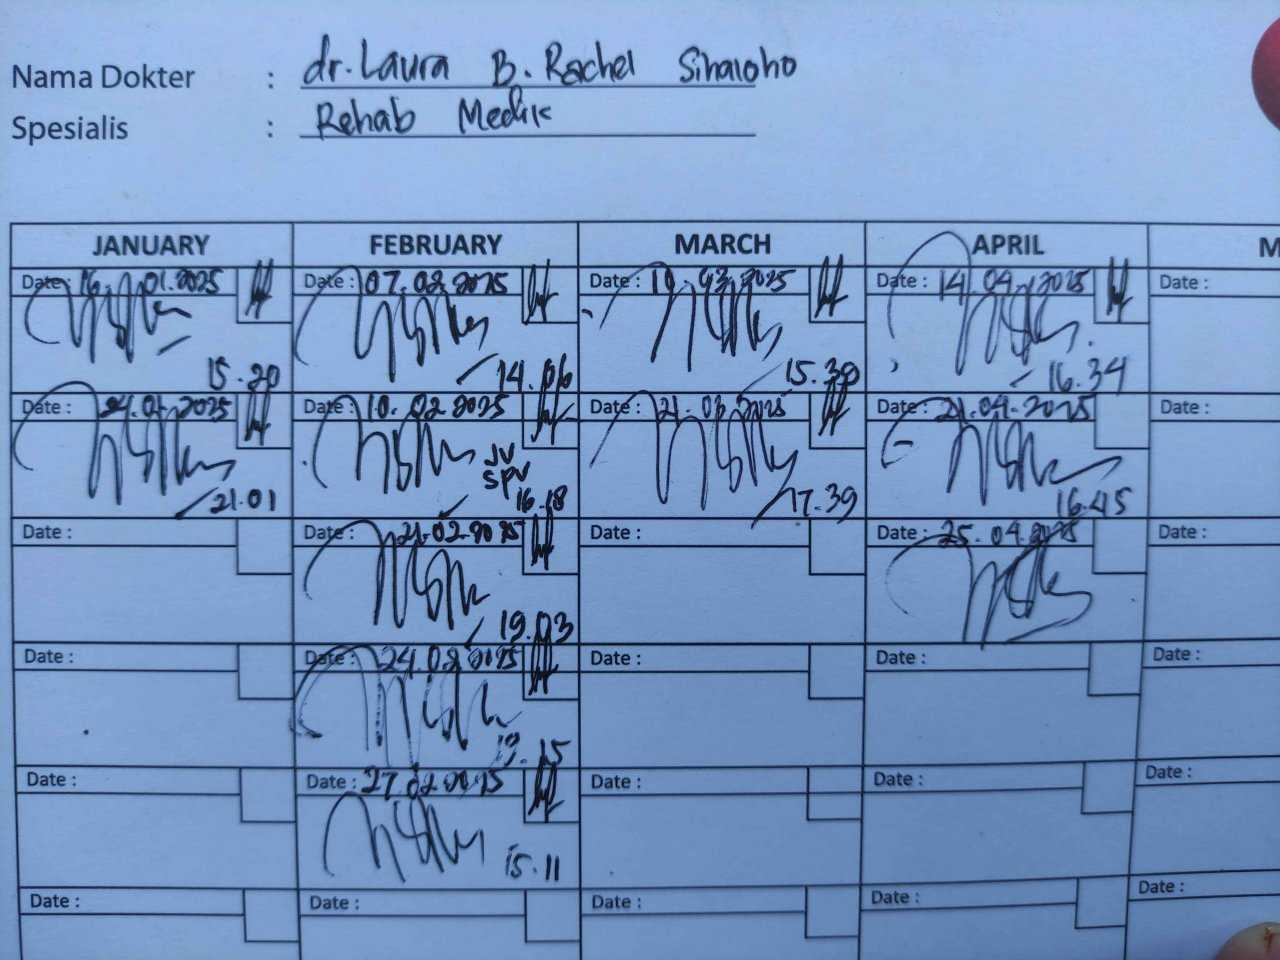 Nama Dokter : dr. Laura B. Rachel Sihaloho
Spesialis : Rehab Medik
JANUARY FEBRUARY MARCH APRIL M
Date : 16.01.2025 Date : 07.02.2025 Date : 10.03.2025 Date : 14.04.2025 Date :
15.20 14.06 15.30 16.34
Date : 24.01.2025 Date : 10.02.2025 Date : 21.03.2025 Date : 21.04.2025 Date :
JV
SPV
21.01 16.18 17.39 16.45
Date : Date : 21.02.2025 Date : Date : 25.04.2025 Date :
19.03
Date : Date : 24.02.2025 Date : Date : Date :
19.15
Date : Date : 27.02.2025 Date : Date : Date :
15.11
Date : Date : Date : Date : Date :